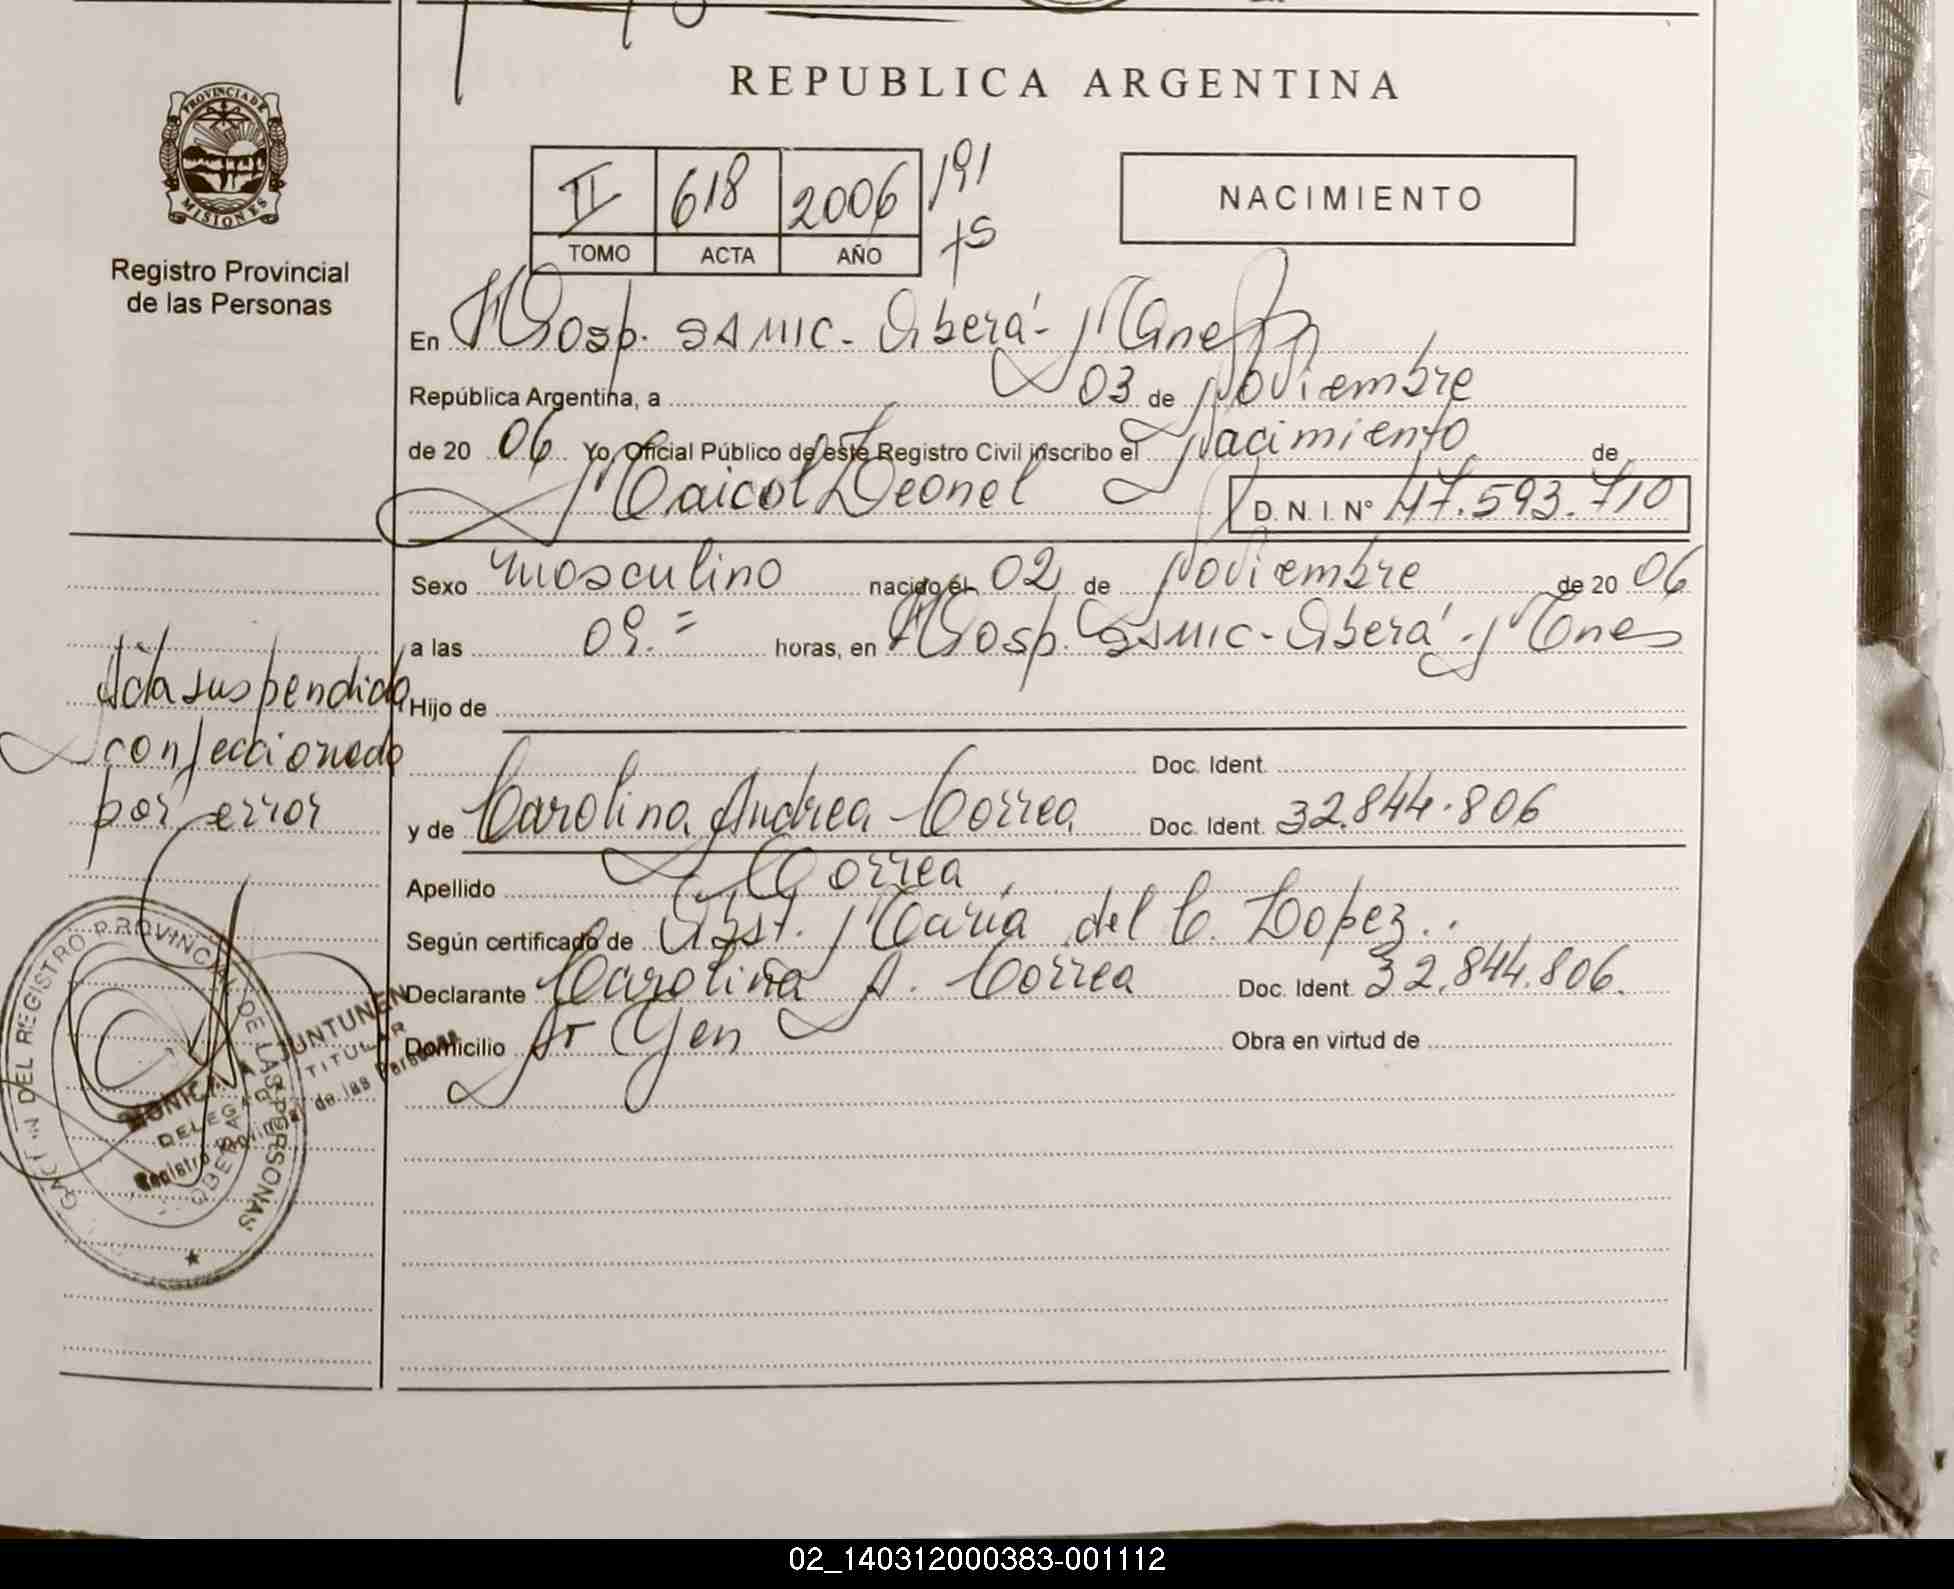 REPUBLICA ARGENTINA
PROVINCIA DE
MISIONES
Registro Provincial
de las Personas
II 618 2006 191
TOMO ACTA AÑO
NACIMIENTO
En Hosp. SAMIC - Oberá - Mnes
República Argentina, a 03 de Noviembre
de 20 06 Yo, Oficial Público de este Registro Civil inscribo el Nacimiento de
Maicol Leonel D. N. I. N° 47.593.710
Sexo masculino nacido el 02 de Noviembre de 20 06
a las 09.= horas, en Hosp. SAMIC - Oberá - Mnes
Hijo de
Doc. Ident.
y de Carolina Andrea Correa Doc. Ident. 32.844.806
Apellido Correa
Según certificado de Obst. María del C. Lopez..
Declarante Carolina A. Correa Doc. Ident. 32.844.806.
Domicilio Obra en virtud de
Acta suspendida
confeccionado
por error
DEL REGISTRO PROVINCIAL DE LAS PERSONAS
MONICA A. JUNTUNEN
DELEGADA TITULAR
Registro Provincial de las Personas
OBERA
02_140312000383-001112